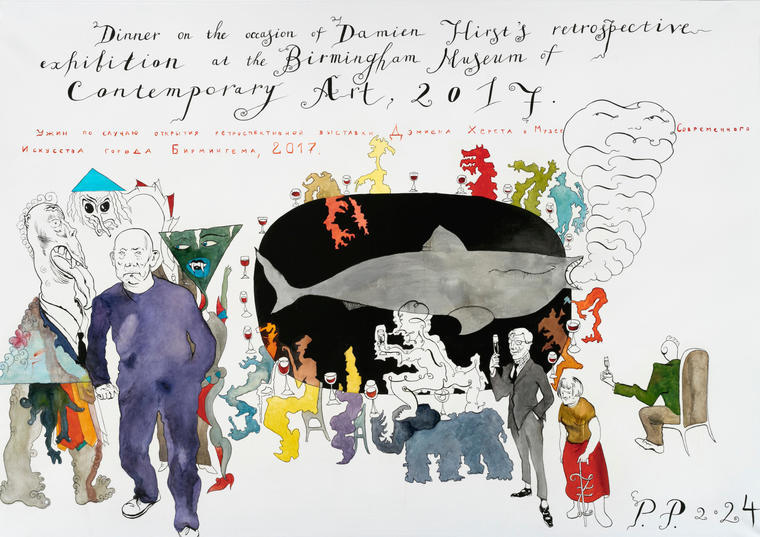 Dinner on the occasion of Damien Hirst's retrospective
exhibition at the Birmingham Museum of
Contemporary Art, 2017.
Ужин по случаю открытия ретроспективной выставки Дэмиена Херста в Музее Современного
Искусства города Бирмингема, 2017.
P.P. 2024